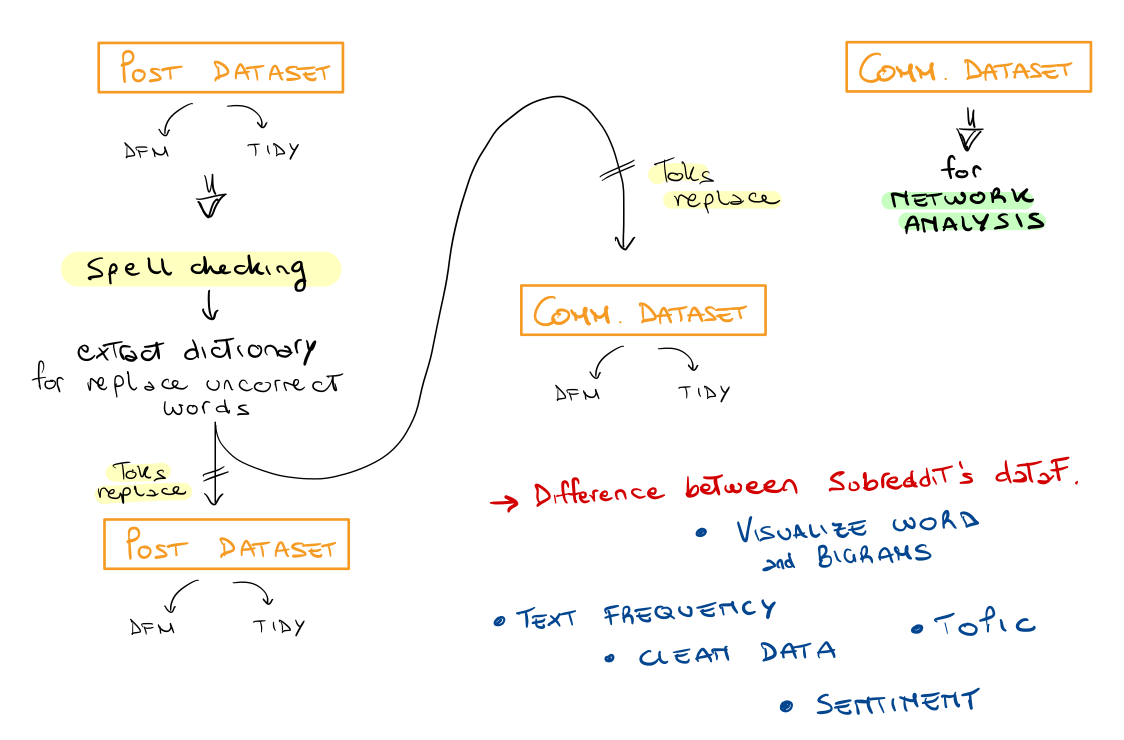 POST DATASET
DFM TIDY
Spell checking
extract dictionary
for replace uncorrect
words
Toks
replace
POST DATASET
DFM TIDY
Toks
replace
COMM. DATASET
DFM TIDY
COMM. DATASET
for
NETWORK
ANALYSIS
→ Difference between Subreddit's dataF.
• VISUALIZE WORD
and BIGRAMS
• TEXT FREQUENCY
• TOPIC
• CLEAN DATA
• SENTIMENT